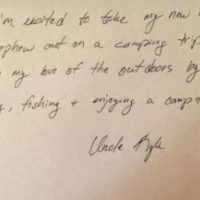 I'm excited to take my new
nephew out on a camping trip
my love of the outdoors by
, fishing + enjoying a
Uncle Kyle